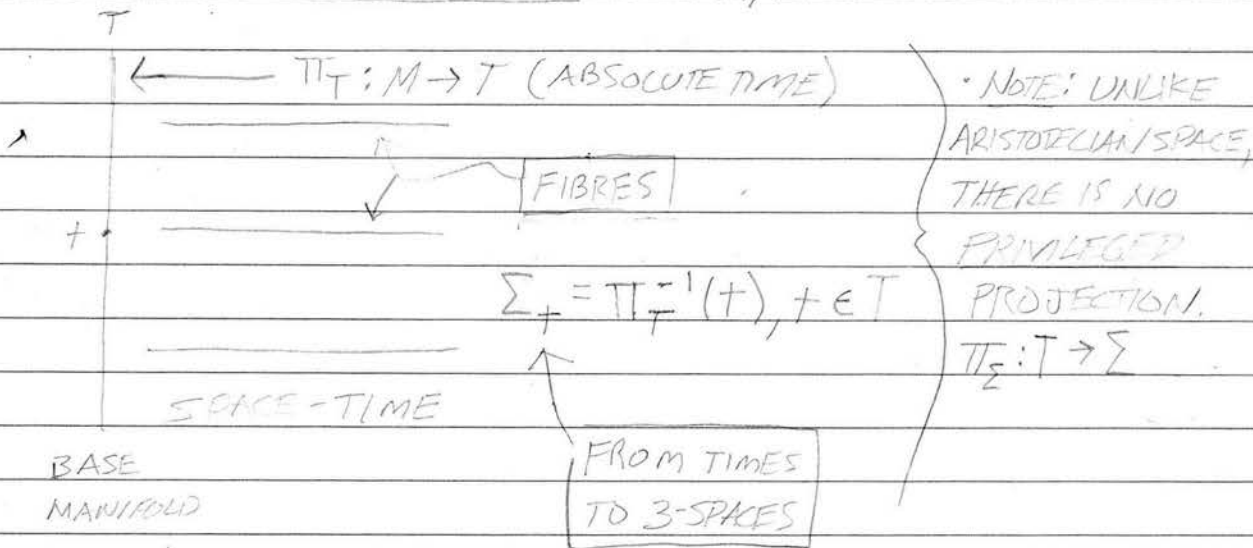 T
Π_T : M → T (ABSOLUTE TIME)
FIBRES
t
Σ_t = Π_T^-1(t), t ∈ T
SPACE-TIME
BASE
MANIFOLD
FROM TIMES
TO 3-SPACES
• NOTE: UNLIKE
ARISTOTELIAN SPACE,
THERE IS NO
PRIVILEGED
PROJECTION.
Π_Σ : T → Σ